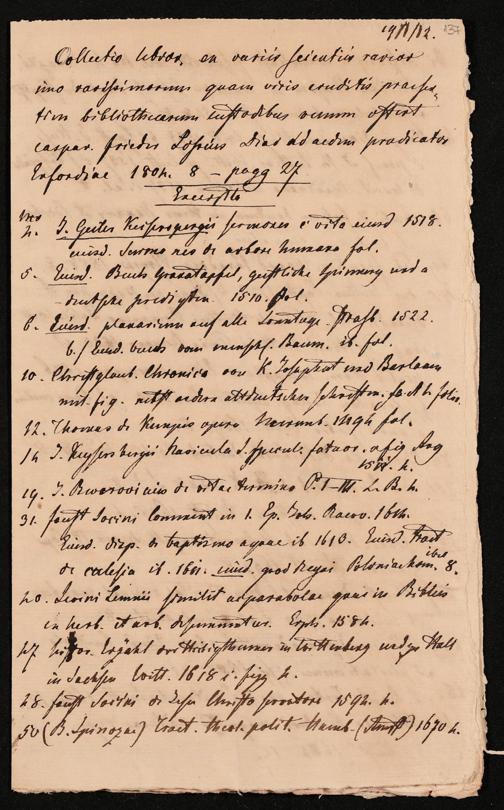 19/11/12. 137
Collectio libror. ex variis scientiis rarior
imo rarissimorum quam viris eruditis praeser-
tim bibliothecarum custodibus venum offert
caspar. frieder Lossius Diac ad aedem praedicator
Erfordiae 1804. 8 – pagg 27
Excerpta
2. J. Geiler Keiserspergii sermones e vita eiusd 1518.
eiusd. Sermones de arbore humana fol.
5. Eiusd. Buch Granatapfel, geistliche Spinnerin und a
deutsche predigten 1510. fol.
6. Eiusd. planarium auf alle Sonntage. Strasb. 1522.
b./ Eiusd. buch vom menschl. Baum. ib. fol.
10. Christglaub. Chronica von K. Josaphat und Barlaam
mit fig. nebst andern altdeutschen Schriften
12. Thomas de Kempis opera Norimb. 1494 fol.
14 J. Keysersbergii Navicula s. specul. fatuor. c fig Arg
1511. 4.
19. J. Beverovicius de vitae termino P. I–III. L. B. 4.
31. faust Socini Comment in 1. Ep. Joh. Racov. 1614.
Eiusd. disp. de baptismo aquae ib 1613. Eiusd. tract
de ecclesia ib. 1611. eiusd. quod regni Poloniae 8.
40. Levini Lemnii similit ac parabolae quae in Bibliis
in herb. et arb. desumuntur. Erph. 1584.
47. Histor. Erzähl der Heiligthumer in Wittenberg und zu Hall
in Sachsen Witt. 1618 c. figg 4.
48. faust Socini de Jesu Christo servatore 1594. 4.
50 (B. Spinozae) Tract. theol. polit. Hamb. (Amst) 1670 4.